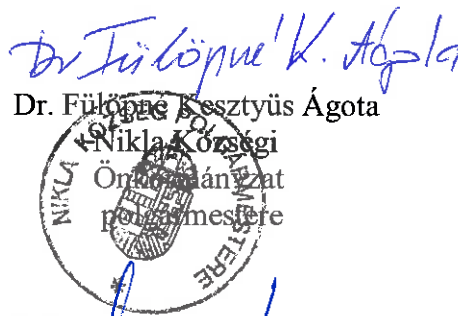 Dr Fülöpné K. Ágota
Dr. Fülöpné Kesztyüs Ágota
Nikla Községi
Önkormányzat
polgármestere
NIKLA KÖZSÉG POLGÁRMESTERE